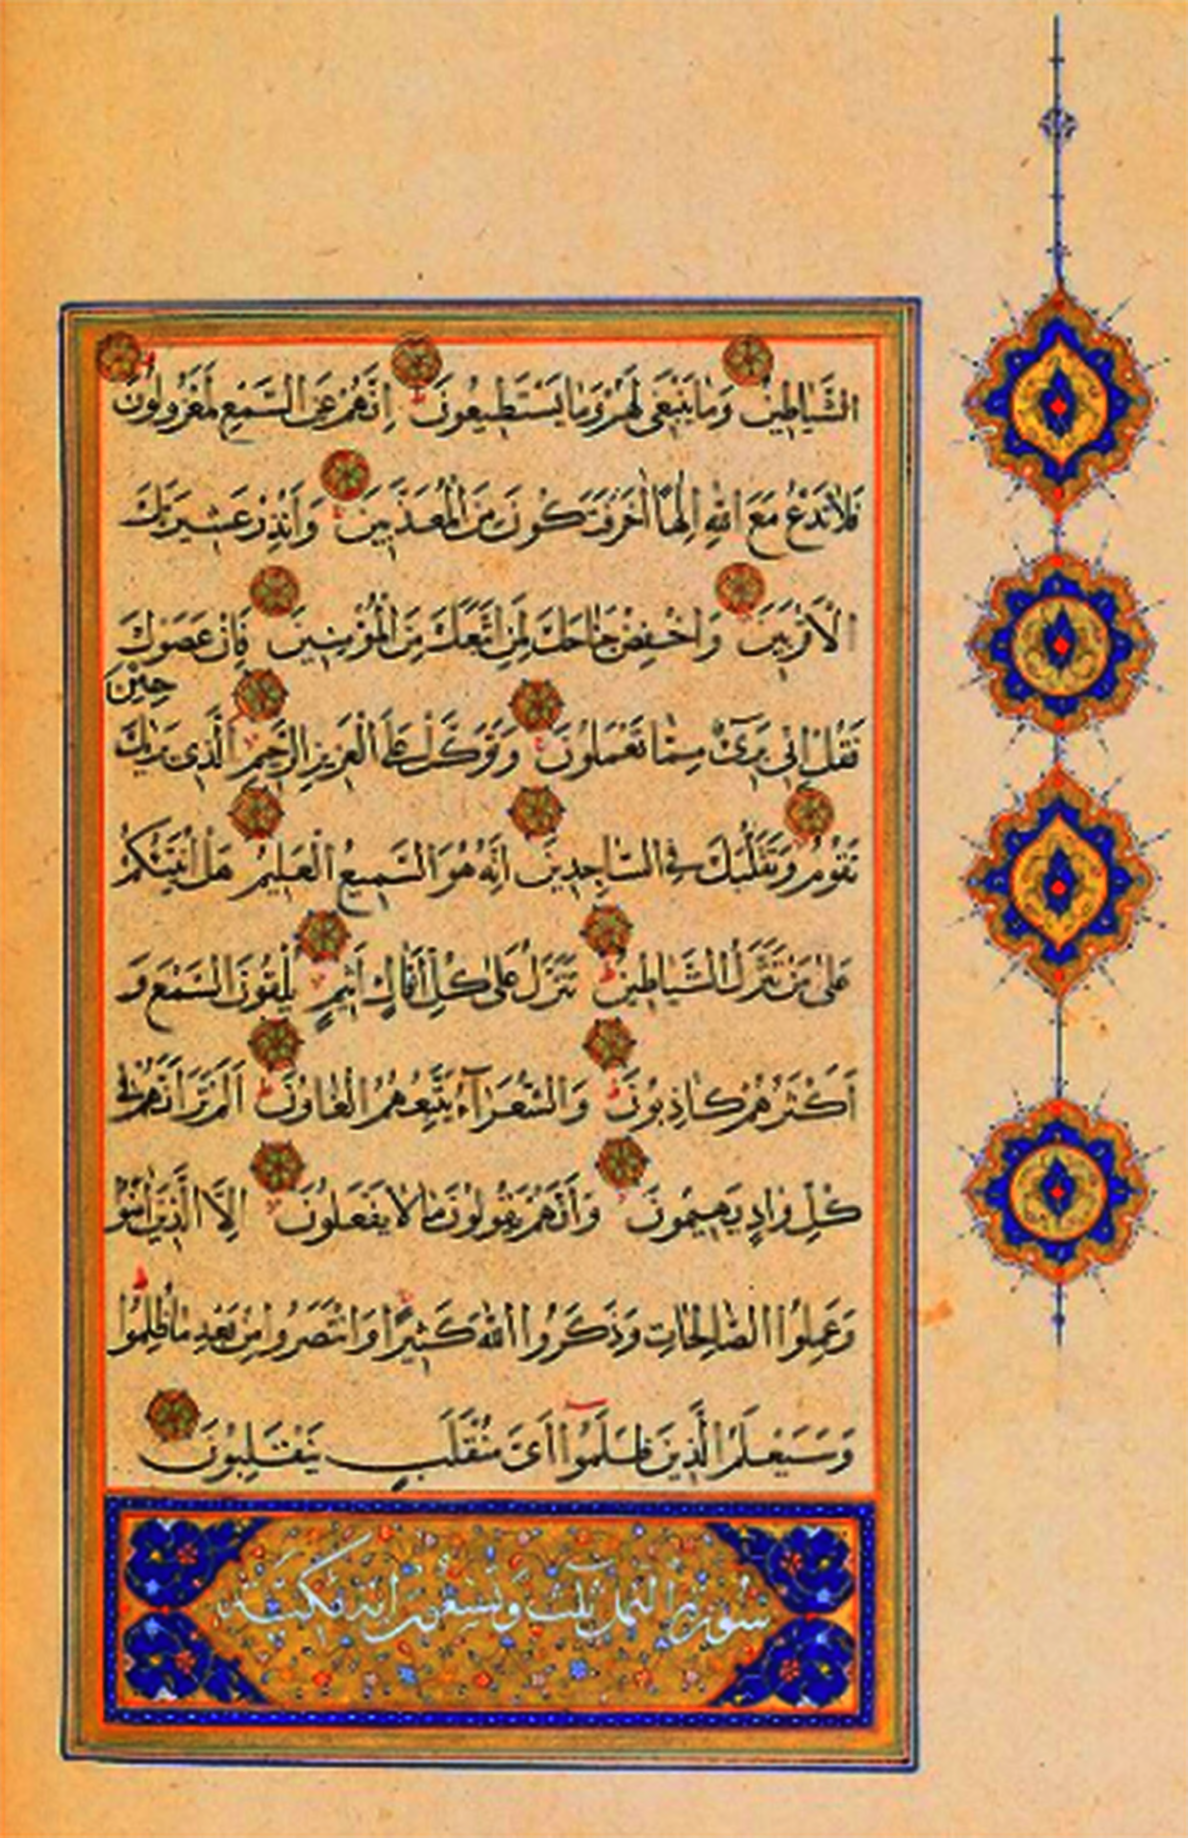 الشَّيَاطِينُ وَمَا يَنْبَغِي لَهُمْ وَمَا يَسْتَطِيعُونَ إِنَّهُمْ عَنِ السَّمْعِ لَمَعْزُولُونَ
فَلَا تَدْعُ مَعَ اللهِ إِلٰهًا اٰخَرَ فَتَكُونَ مِنَ الْمُعَذَّبِينَ وَأَنْذِرْ عَشِيرَتَكَ
الْأَقْرَبِينَ وَاخْفِضْ جَنَاحَكَ لِمَنِ اتَّبَعَكَ مِنَ الْمُؤْمِنِينَ فَإِنْ عَصَوْكَ
فَقُلْ إِنِّي بَرِيءٌ مِمَّا تَعْمَلُونَ وَتَوَكَّلْ عَلَى الْعَزِيزِ الرَّحِيمِ الَّذِي يَرٰيكَ حِينَ
تَقُومُ وَتَقَلُّبَكَ فِي السَّاجِدِينَ إِنَّهُ هُوَ السَّمِيعُ الْعَلِيمُ هَلْ أُنَبِّئُكُمْ
عَلٰى مَنْ تَنَزَّلُ الشَّيَاطِينُ تَنَزَّلُ عَلٰى كُلِّ أَفَّاكٍ أَثِيمٍ يُلْقُونَ السَّمْعَ وَ
أَكْثَرُهُمْ كَاذِبُونَ وَالشُّعَرَآءُ يَتَّبِعُهُمُ الْغَاوُنَ أَلَمْ تَرَ أَنَّهُمْ فِي
كُلِّ وَادٍ يَهِيمُونَ وَأَنَّهُمْ يَقُولُونَ مَا لَا يَفْعَلُونَ إِلَّا الَّذِينَ اٰمَنُوا
وَعَمِلُوا الصَّالِحَاتِ وَذَكَرُوا اللهَ كَثِيرًا وَانْتَصَرُوا مِنْ بَعْدِ مَا ظُلِمُوا
وَسَيَعْلَمُ الَّذِينَ ظَلَمُوا أَيَّ مُنْقَلَبٍ يَنْقَلِبُونَ
سورة النمل ثلث وتسعون اية مكية